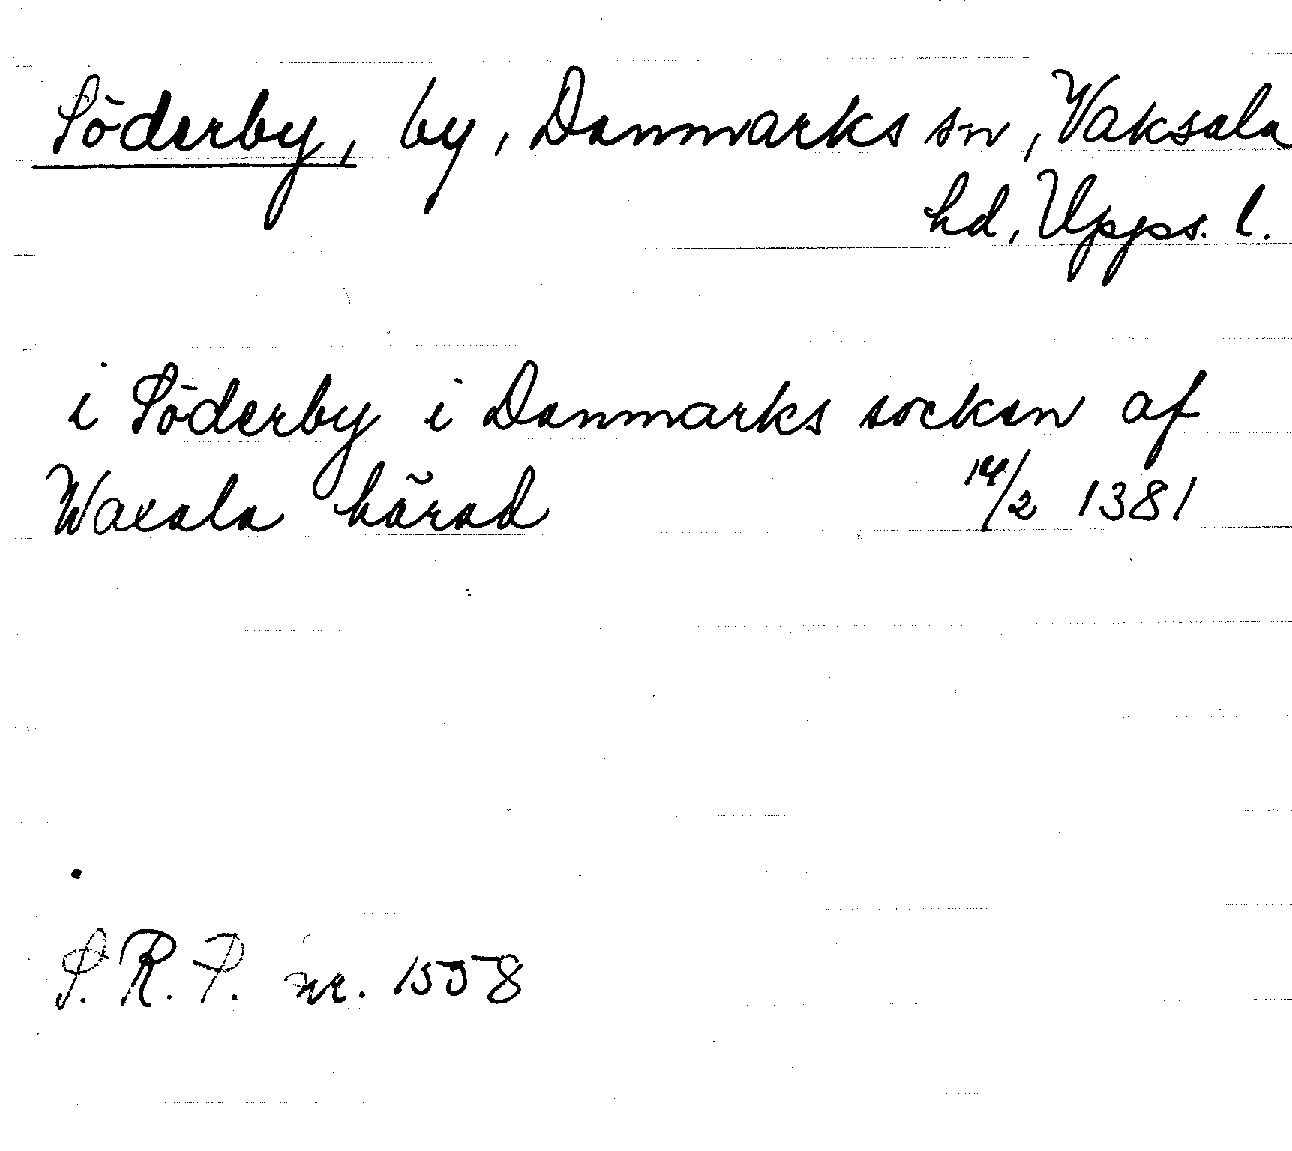 Söderby, by, Danmarks sn, Vaksala
hd, Upps. l.
i Söderby i Danmarks socken af
Waxala härad 14/2 1381
S.R.P. nr. 1558